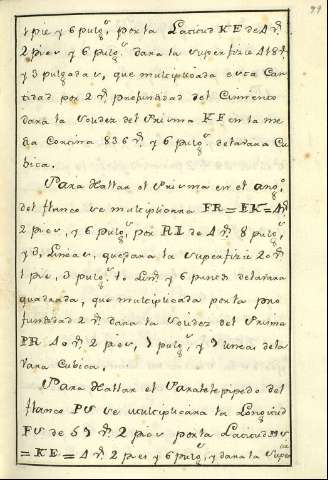 99
1 pie y 6 pulg.s por la Latitud KE de 4 v.s
2 pies y 6 pulg.s dara la superfizie 418 v.s
y 3 pulgadas, que multiplicada esta Can
tidad por 2 v.s profundidad del Cimiento
dara la solidez del Prisma KF en la me
dia Cortina 836 v.s y 6 pulg.s de tavara Cu
bica.
Para Hallar el Prisma en el ang.o
del flanco se multiplicara FR = EK = 4 v.s
2 pies, y 6 pulg.s por RI de 4 v.s 8 pulg.s
y 3, Lineas, que dara la superfizie 20 v.s
1 pie, 3 pulg.s 10 Lin.s y 6 puntos de tavara
quadrada, que multiplicada por la pro
fundidad 2 v.s dara la solidez del Prisma
PR 40 v.s 2 pies, 7 pulg.s y 9 lineas de ta
vara Cubica.
Para Hallar el Paralelepipedo del
flanco PS se multiplicara la Longitud
FS de 59 v.s 2 pies por la Latitud
= KE = 4 v.s 2 pies y 6 pulg.s y dara la supe